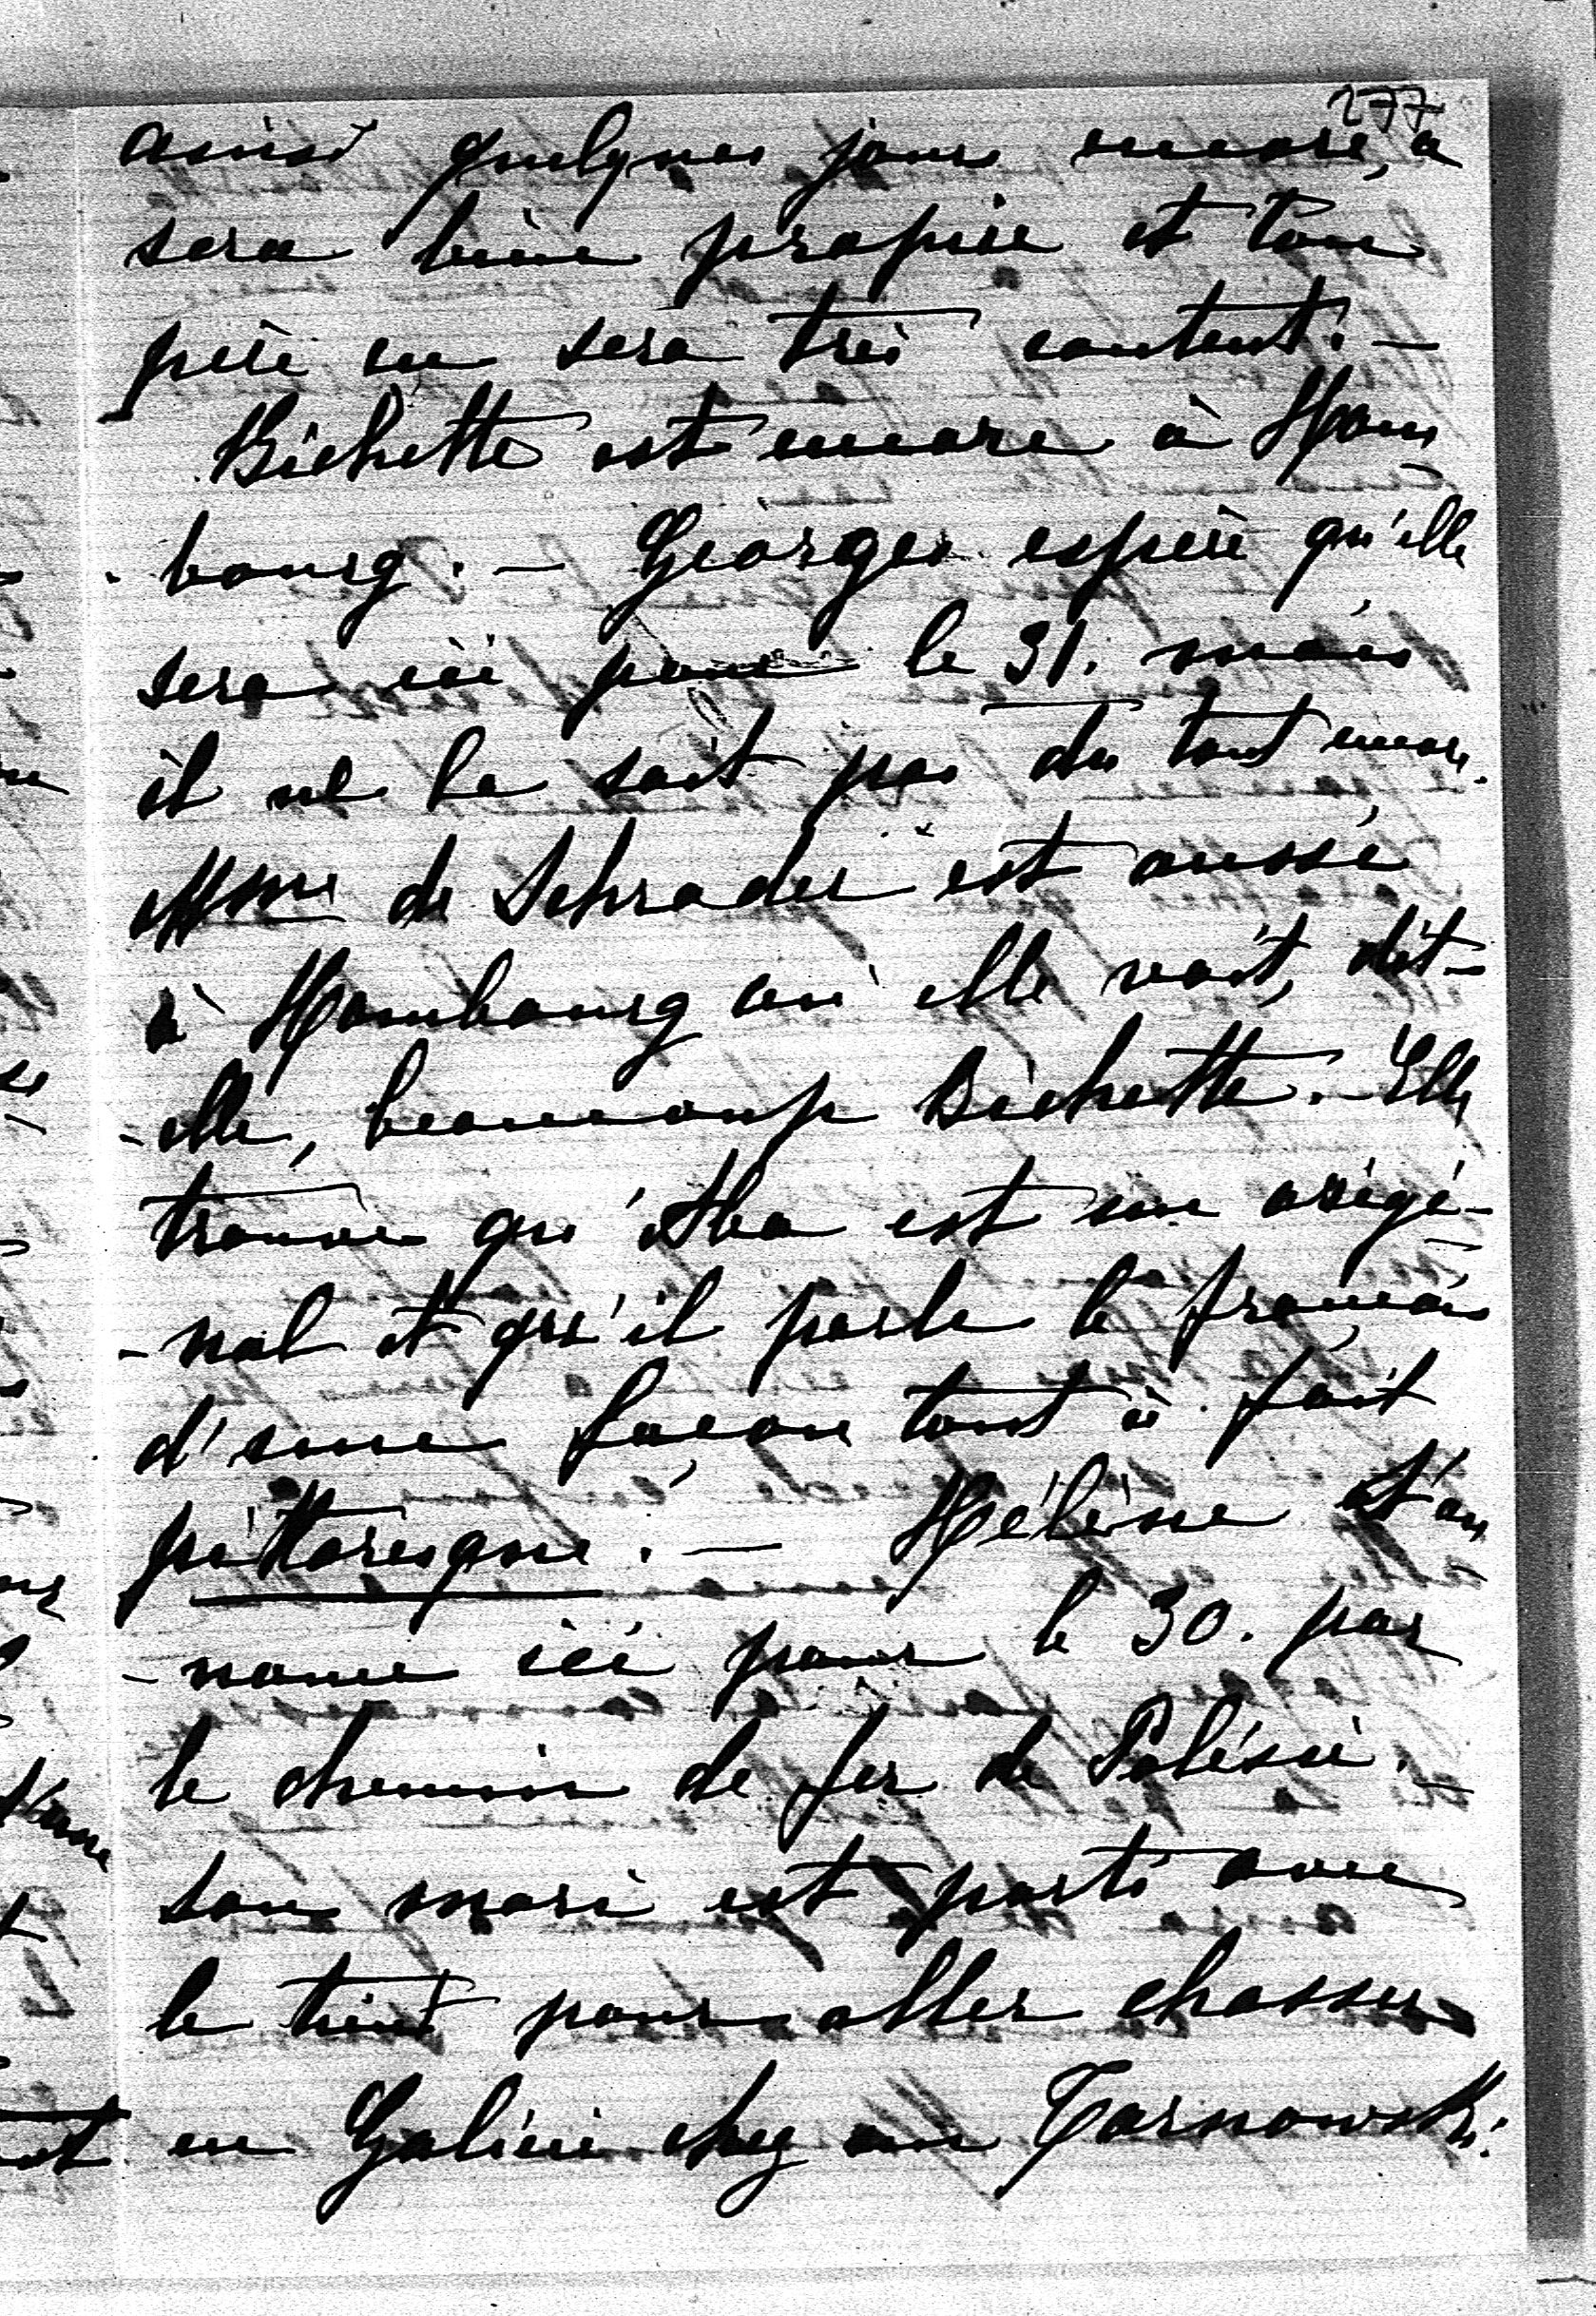 277
ainsi quelques jours encore, ça
sera bien propre et ton
père en sera très content. —
Bichette est encore à Hom
bourg. — Georges espère qu'elle
sera ici pour le 31. mais
il ne le sait pas du tout encore.
Mme de Schrader est aussi
à Hombourg où elle voit, dit-
-elle, beaucoup Bichette. Elle
trouve qu'Aba est un origi-
-nal et qu'il parle le français
d'une façon tout à fait
pittoresque. — Hélène s'an
-nonce ici pour le 30. par
le chemin de fer de Polésie. —
son mari est parti avec
le pour aller chasser
en Galicie chez un Tarnowski.